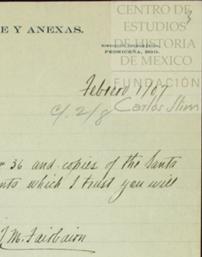 CENTRO DE
ESTUDIOS
DE HISTORIA
DE MEXICO
E Y ANEXAS.
PEDRICEÑA, DGO.
FUNDACIÓN
Febrero 1/07
C/. 2/8
Carlos Slim
36 and copies of the Santa
nts which I trust you will
J M Fairbairn